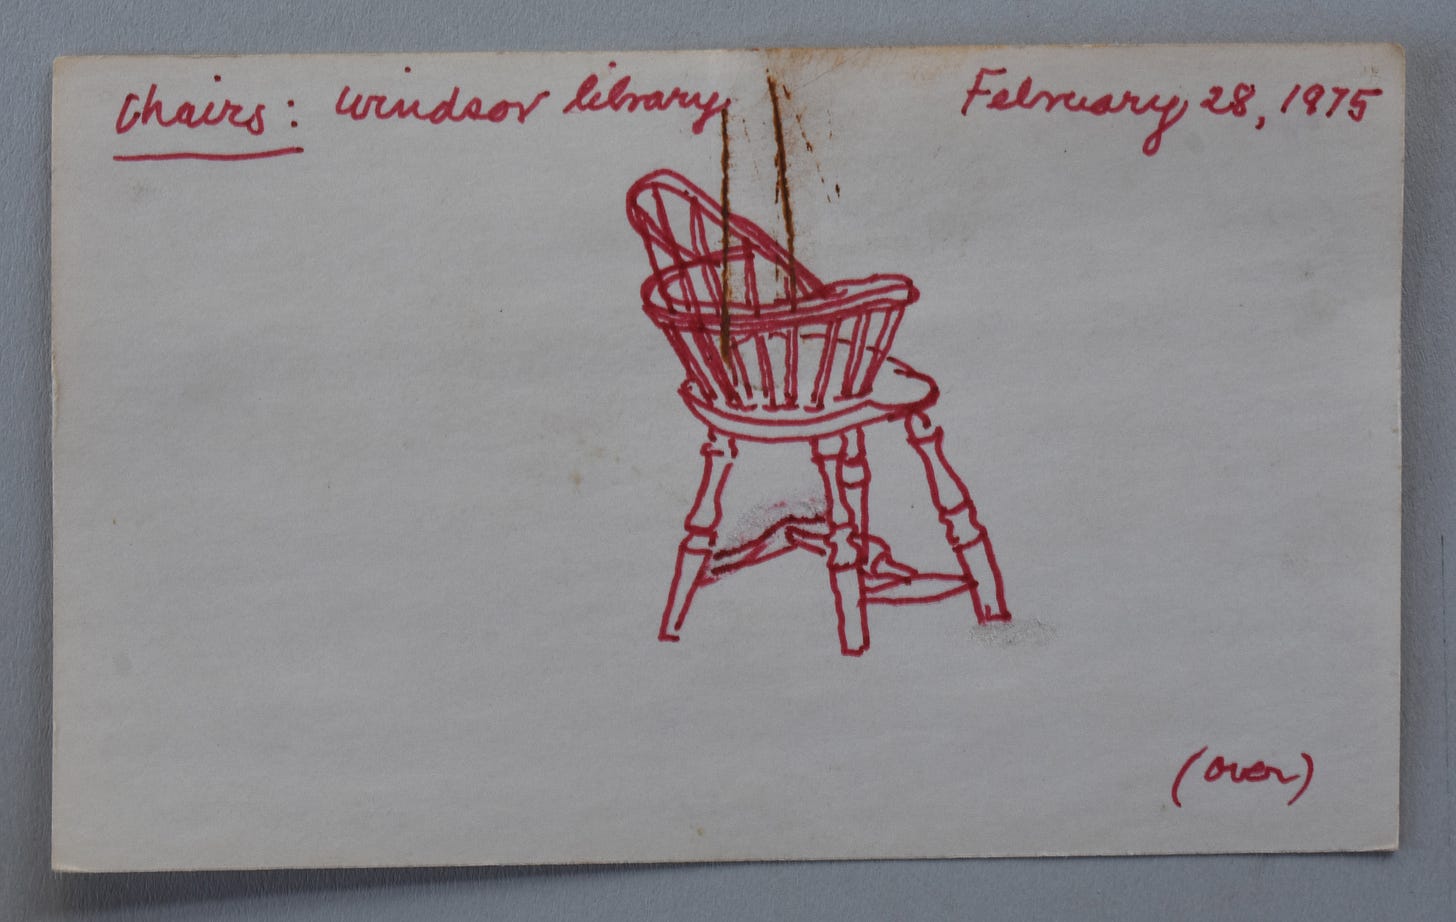 Chairs: Windsor library February 28, 1975
(over)